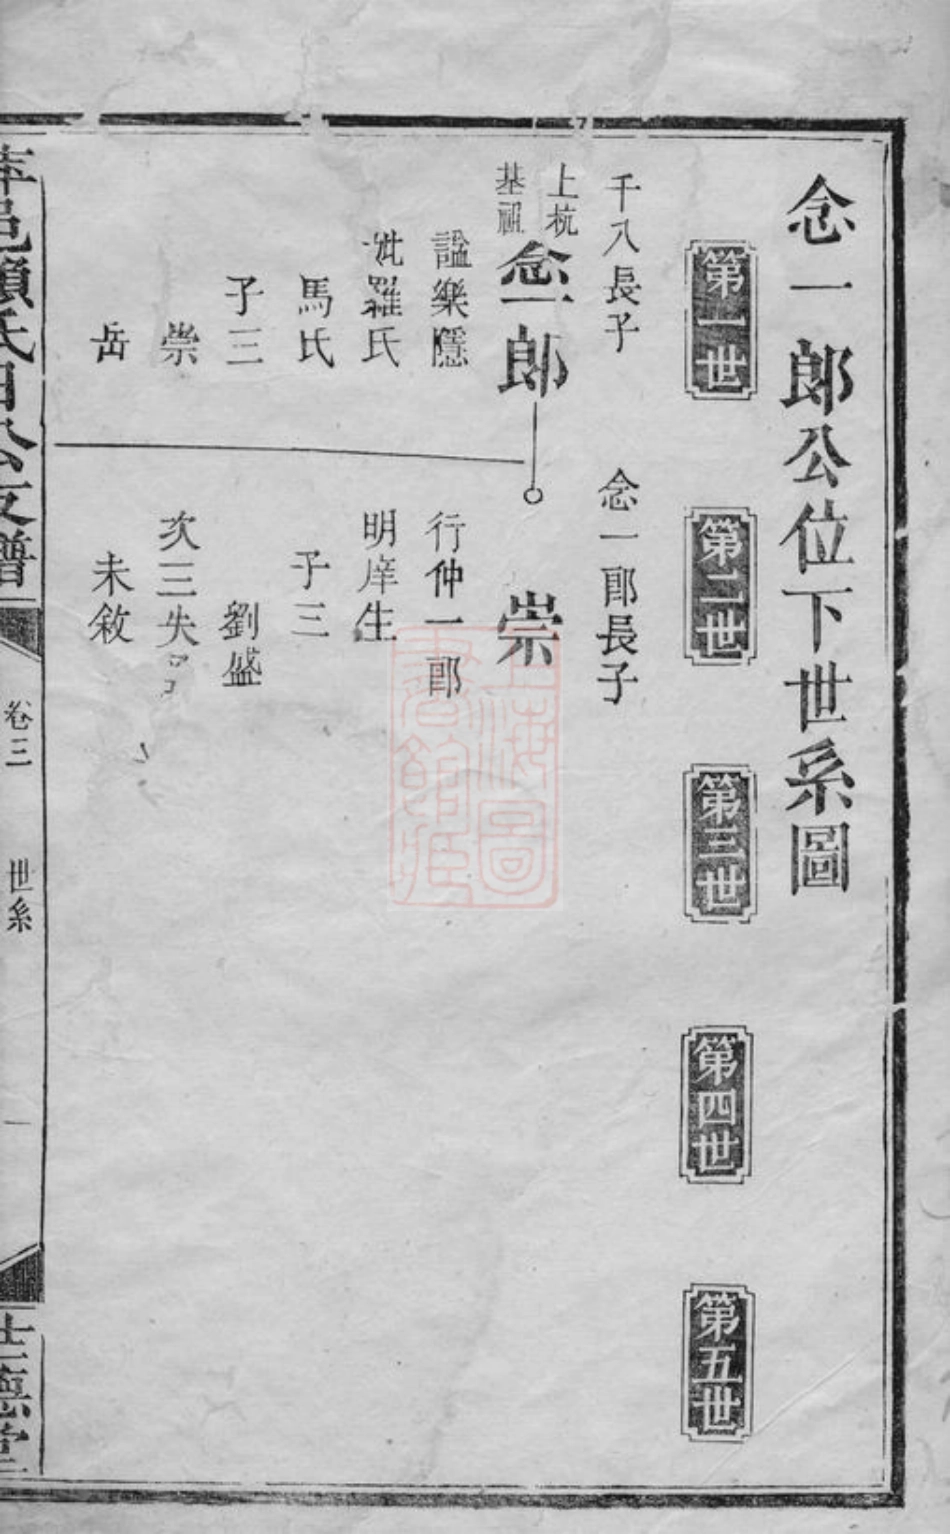 念一郎公位下世系圖
第一世
第二世
第三世
第四世
第五世
千八長子
上杭
基祖
念一郎
謚樂隱
妣羅氏
馬氏
子三
崇
岳
念一郎長子
崇
行仲一郎
明庠生
子三
劉盛
次三失
未敘
邑賴氏自公支譜
卷三
世系
一
德堂
上海圖
書館藏